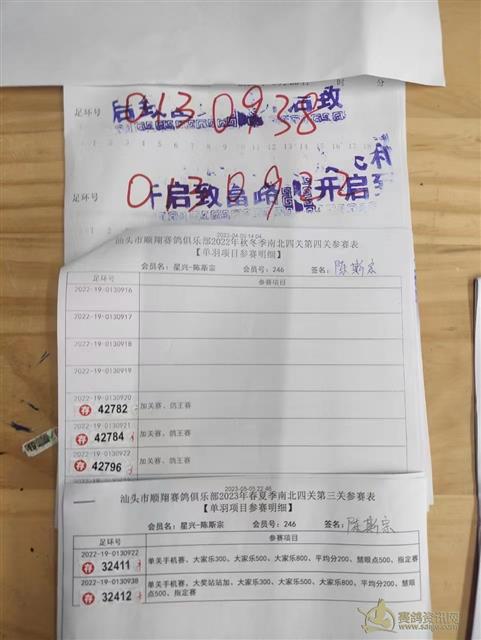 足环号
013 0938
足环号
013 0922
2023-04-05 14:04
汕头市顺翔赛鸽俱乐部2022年秋冬季南北四关第四关参赛表
【单羽项目参赛明细】
会员名：星兴-陈斯宗 会员号：246 签名：陈斯宗
足环号 参赛项目
2022-19-0130916
2022-19-0130917
2022-19-0130918
2022-19-0130919
2022-19-0130920
荐 42782 加关赛、鸽王赛
2022-19-0130921
荐 42784 加关赛、鸽王赛
2022-19-0130922
荐 42796 加关赛、鸽王赛
2023-05-05 22:46
汕头市顺翔赛鸽俱乐部2023年春夏季南北四关第三关参赛表
【单羽项目参赛明细】
会员名：星兴-陈斯宗 会员号：246 签名：陈斯宗
足环号 参赛项目
2022-19-0130922
荐 32411 单关手机赛、大家乐300、大家乐500、大家乐800、平均分200、慧眼点500、指定赛
2022-19-0130938
荐 32412 单关手机赛、大奖站站加、大家乐300、大家乐500、大家乐800、平均分200、慧眼点500、指定赛
赛鸽资讯网